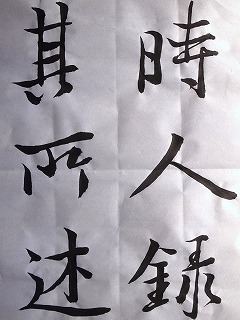 時人録
其所述